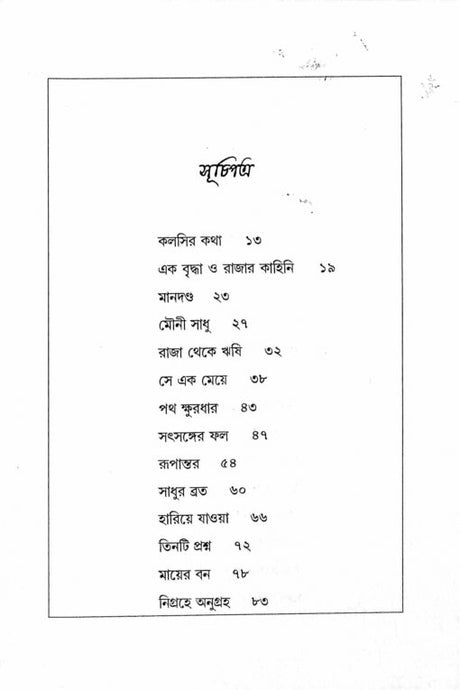 সূচিপত্র
কলসির কথা ১৩
এক বৃদ্ধা ও রাজার কাহিনি ১৯
মানদণ্ড ২৩
মৌনী সাধু ২৭
রাজা থেকে ঋষি ৩২
সে এক মেয়ে ৩৮
পথ ক্ষুরধার ৪৩
সৎসঙ্গের ফল ৪৭
রূপান্তর ৫৪
সাধুর ব্রত ৬০
হারিয়ে যাওয়া ৬৬
তিনটি প্রশ্ন ৭২
মায়ের বন ৭৮
নিগ্রহে অনুগ্রহ ৮৩